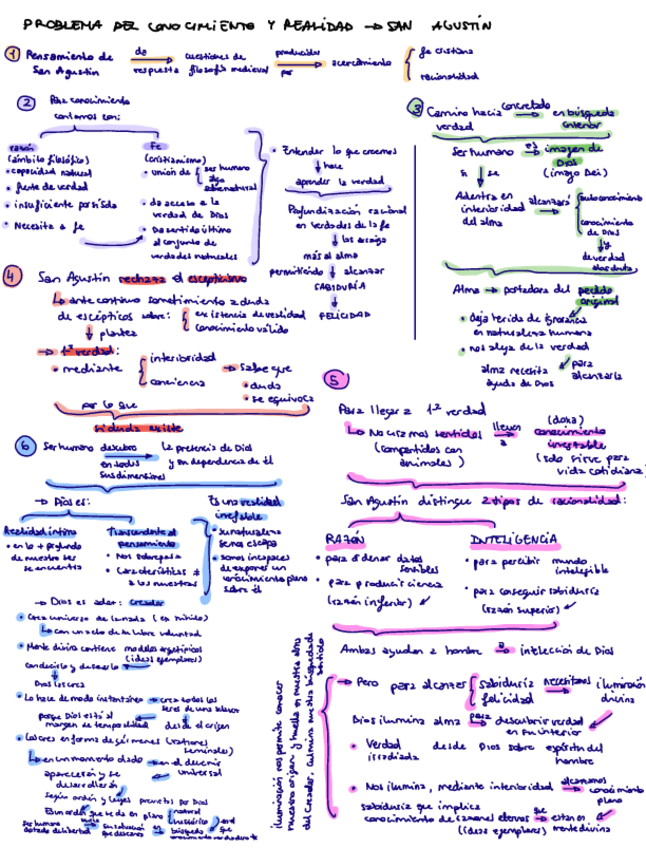 PROBLEMA DEL CONOCIMIENTO Y REALIDAD → SAN AGUSTÍN
1 Pensamiento de San Agustín
da respuesta
cuestiones de filosofía medieval
producidas por
acercamiento
fe cristiana
racionalidad
2 Para conocimiento
contamos con:
razón
(ámbito filosófico)
• capacidad natural
• fuente de verdad
• insuficiente por sí sola
• Necesita a fe
Fe
(cristianismo)
• unión de
ser humano
algo sobrenatural
• da acceso a la
verdad de Dios
• Da sentido último
al conjunto de
verdades naturales
• Entender lo que creemos
↓ hace
aprender la verdad
Profundización racional
en verdades de la fe
↓ las arraiga
más al alma
permitiendo ↓ alcanzar
SABIDURÍA
↓
FELICIDAD
3 Camino hacia verdad
concretado
en búsqueda
interior
Ser humano es imagen de
Dios
(imago Dei)
si ↓ se
Adentra en
interioridad
del alma
alcanzará
autoconocimiento
conocimiento
de Dios
↓ y
de verdad
absoluta
Alma → portadora del pecado
original
• deja herida de ignorancia
en naturaleza humana
• nos aleja de la verdad
alma necesita
ayuda de Dios
para
alcanzarla
4 San Agustín rechaza el escepticismo
↳ ante continuo sometimiento a duda
de escépticos sobre:
existencia de realidad
conocimiento válido
↓ plantea
→ 1ª verdad:
• mediante
interioridad
conciencia
→ Sabe que
• duda
• se equivoca
por lo que
si duda existe
5 Para llegar a 1ª verdad
↳ No usamos sentidos
(compartidos con
animales)
llevan a
(doxa)
conocimiento
inestable
(solo sirve para
vida cotidiana)
San Agustín distingue 2 tipos de racionalidad:
RAZÓN
• para ordenar datos
sensibles
• para producir ciencia
(razón inferior)
INTELIGENCIA
• para percibir mundo
inteligible
• para conseguir sabiduría
(razón superior)
Ambas ayudan a hombre a intelección de Dios
→ Pero para alcanzar
sabiduría
felicidad
necesitamos
iluminación
divina
Dios ilumina alma para descubrir verdad
en su interior
• Verdad irradiada
desde Dios sobre espíritu del
hombre
• Nos ilumina, mediante interioridad alcanzamos conocimiento
pleno
sabiduría que implica
conocimiento de razones eternas
(ideas ejemplares)
que
están en
mente divina
iluminación nos permite conocer
nuestro origen y huella en nuestra alma
del Creador, culmina nuestra búsqueda de
sentido
6 Ser humano descubre
en todas
sus dimensiones
la presencia de Dios
y su dependencia de Él
→ Dios es:
Realidad íntima
• en lo + profundo
de nuestro ser
se encuentra
Trascendente al
pensamiento
• Nos sobrepasa
• Características ≠
a las nuestras
Es una realidad
inefable
• su naturaleza
se nos escapa
• somos incapaces
de exponer un
conocimiento pleno
sobre él
→ Dios es ador: creador
• Crea universo de la nada (ex nihilo)
↳ con un acto de su libre voluntad
• Mente divina contiene modelos arquetípicos
(ideas ejemplares)
conducirlo y desearlo
↓
Dios las crea
• Lo hace de modo instantáneo → crea todos los
seres de una sola vez
porque Dios está al
margen de temporalidad
desde el origen
• Los crea en forma de gérmenes (rationes
seminales)
↳ en un momento dado → en el devenir
universal
aparecerán y se
desarrollarán
según orden y leyes previstas por Dios
Es un orden que se da en plano
natural
histórico
Ser humano
dotado de libertad